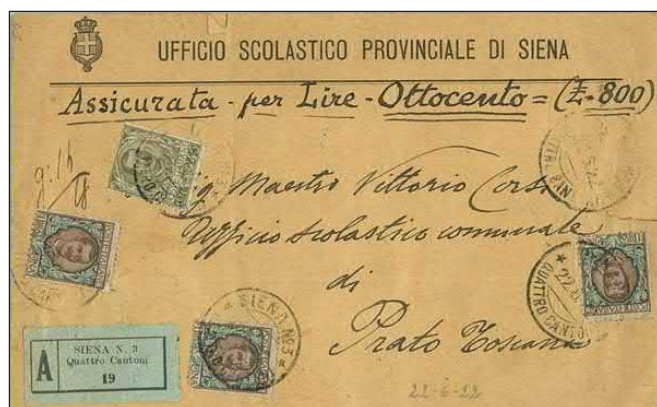 UFFICIO SCOLASTICO PROVINCIALE DI SIENA
Assicurata - per Lire - Ottocento = (£ 800)
Sig. Maestro Vittorio Corsi
Ufficio scolastico comunale
di
Prato Toscana
SIENA N. 3
Quattro Cantoni
A
19
* SIENA N.3 *
QUATTRO CANTO
22-6-22